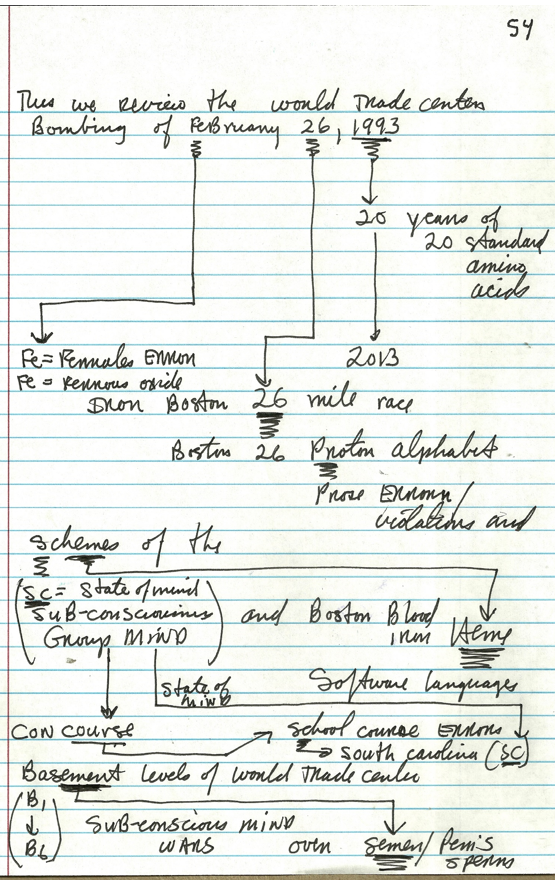 54
Thus we review the would trade center
Bombing of FeBruary 26, 1993
20 years of
20 standard
amino
acids
Fe = Females Error
2013
Fe = Ferrous oxide
Iron Boston 26 mile race
Boston 26 Proton alphabet
Prose Error /
violations and
schemes of the
SC = State of mind
SuB-conscious
Group MIND
and Boston Blood
iron Heme
State of
MIND
Software languages
CON COURSE
school course Errors
→ South Carolina (SC)
Basement levels of would trade center
B1
↓
B6
SuB-conscious MIND
WARS over semen / Penis
sperms